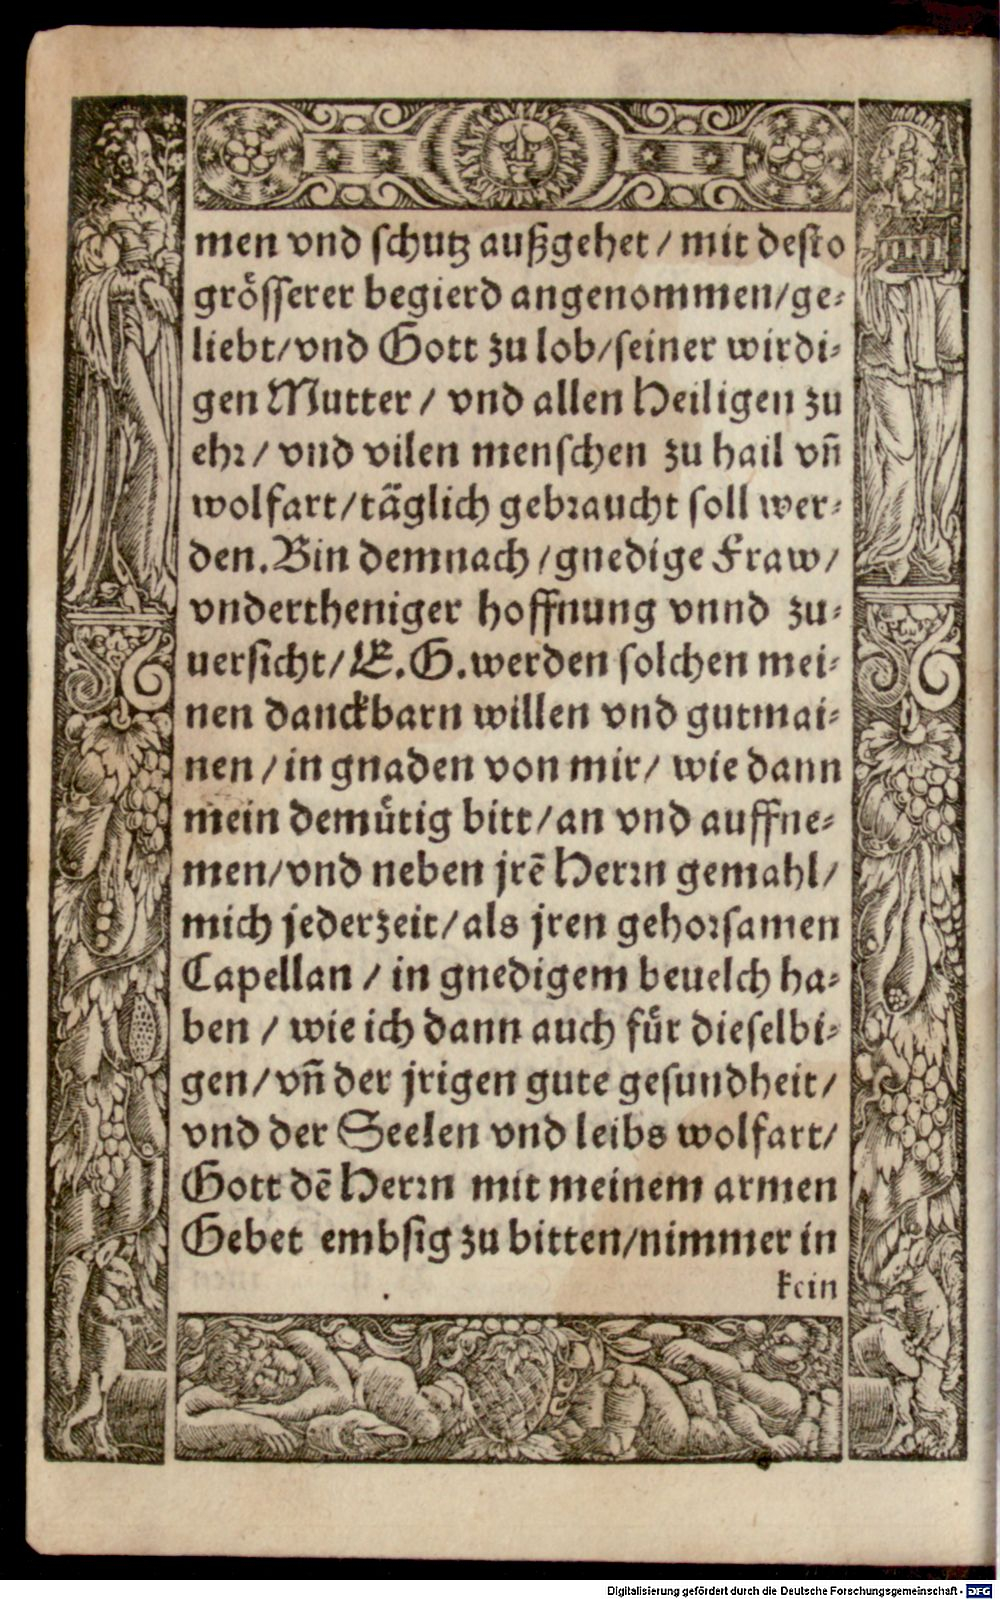 men vnd schutz außgehet / mit desto
grösserer begierd angenommen/ge⸗
liebt/vnd Gott zu lob/seiner wirdi⸗
gen Mutter / vnd allen Heiligen zu
ehr / vnd vilen menschen zu hail vn̄
wolfart/täglich gebraucht soll wer⸗
den. Bin demnach /gnedige Fraw/
vndertheniger hoffnung vnnd zu⸗
uersicht/ E. G. werden solchen mei⸗
nen danckbarn willen vnd gutmai⸗
nen / in gnaden von mir/ wie dann
mein demütig bitt/an vnd auffne⸗
men/vnd neben jrē Herrn gemahl/
mich jederzeit/als jren gehorsamen
Capellan / in gnedigem beuelch ha⸗
ben / wie ich dann auch für dieselbi⸗
gen/vn̄ der jrigen gute gesundheit/
vnd der Seelen vnd leibs wolfart/
Gott dē Herrn mit meinem armen
Gebet embsig zu bitten/nimmer in
kein
Digitalisierung gefördert durch die Deutsche Forschungsgemeinschaft - DFG